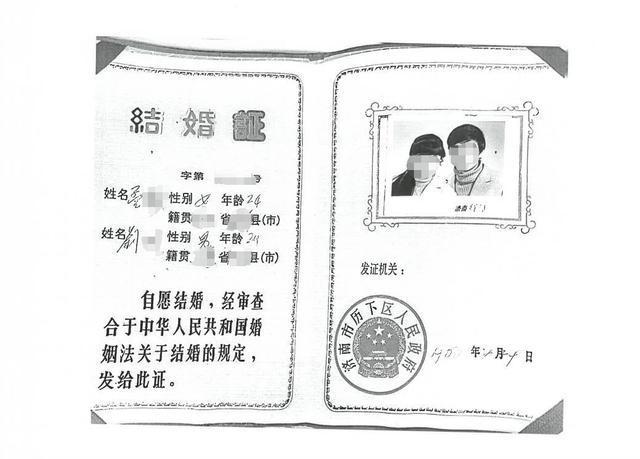 結婚証
字第 号
姓名 性别 女 年龄 24
籍贯 省 县(市)
姓名 刘 性别 男 年龄 24
籍贯 省 县(市)
自愿结婚，经审查
合于中华人民共和国婚
姻法关于结婚的规定，
发给此证。
发证机关：
济南市历下区人民政府
年 月 日